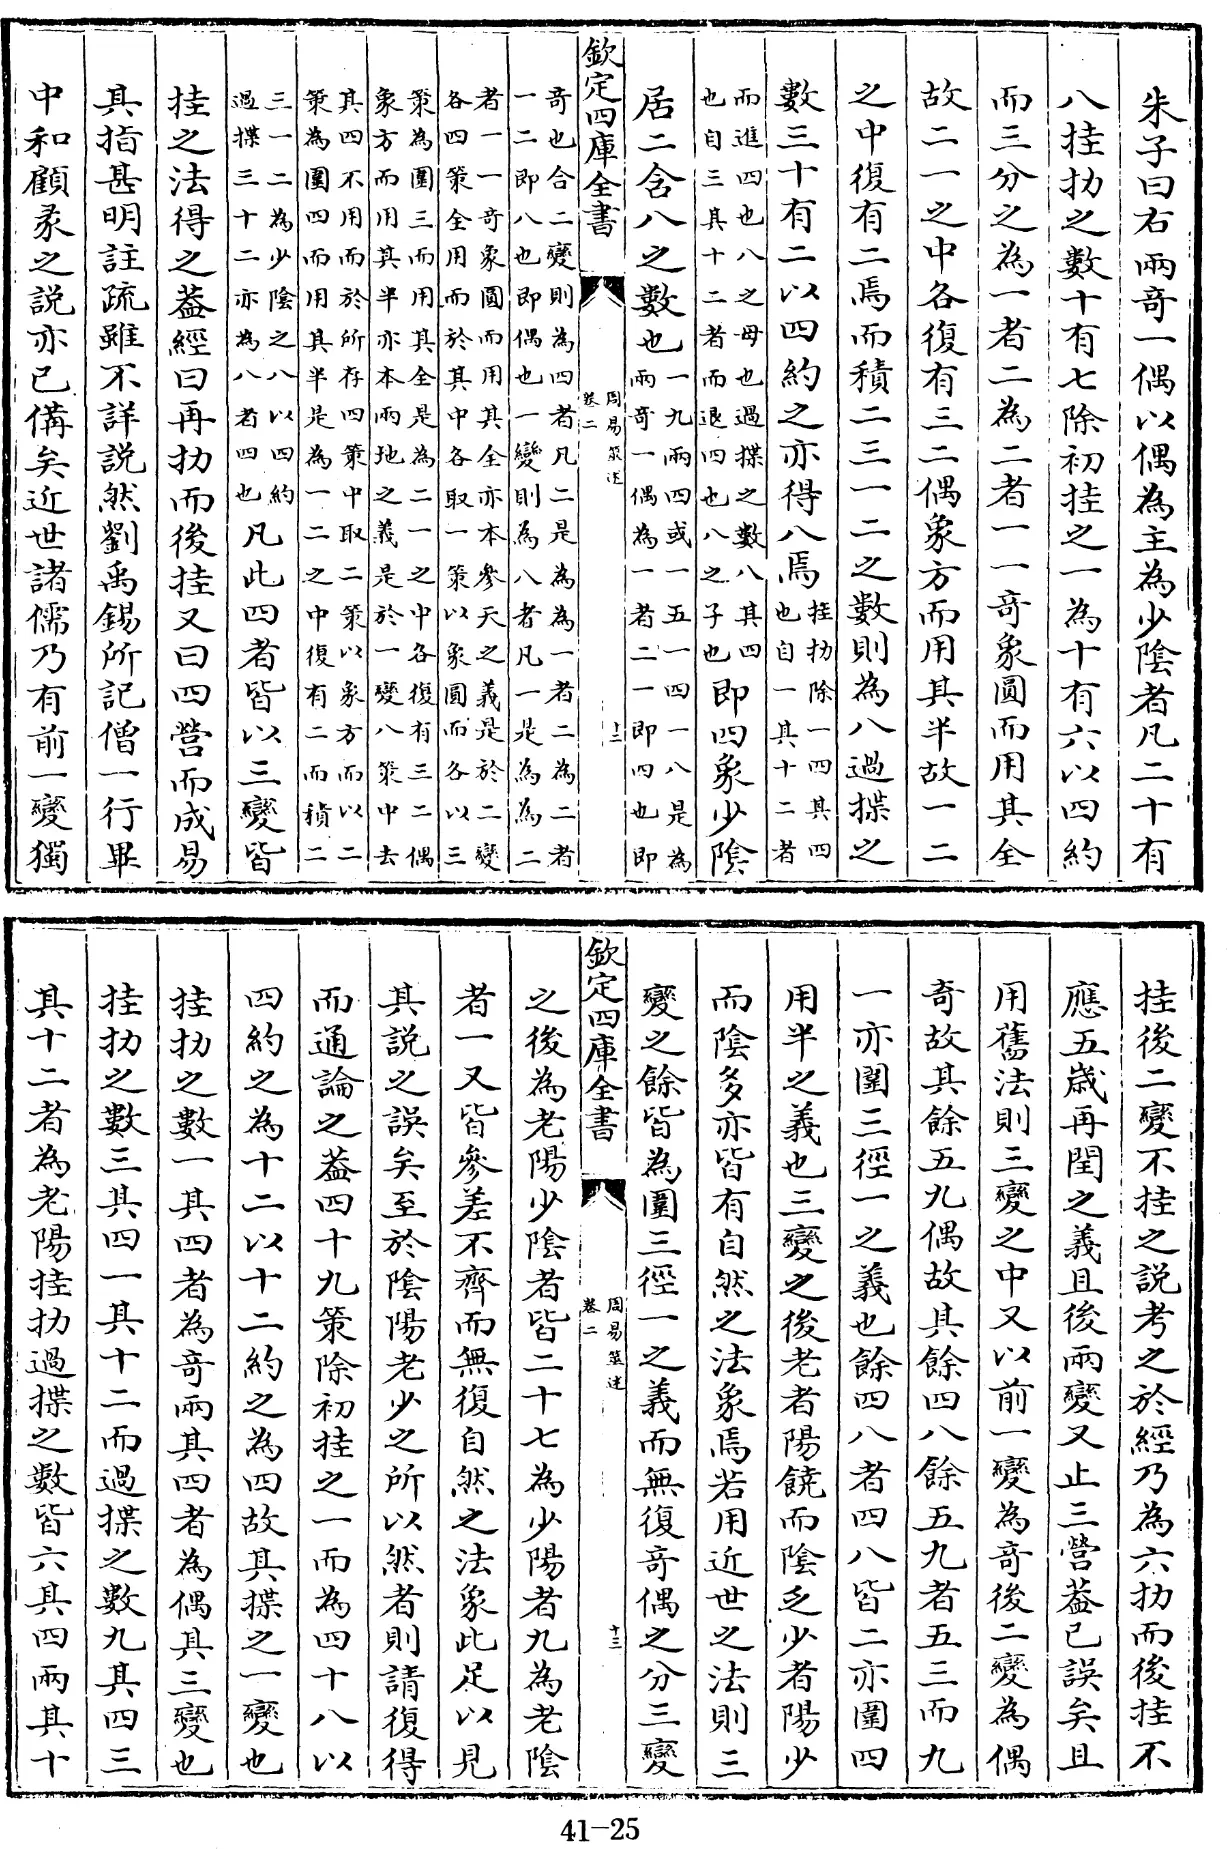 朱子曰右兩奇一偶以偶為主為少陰者凡二十有
八挂扐之數十有七除初挂之一為十有六以四約
而三分之為一者二為二者一一奇象圓而用其全
故二一之中各復有三二偶象方而用其半故一二
之中復有二焉而積二三一二之數則為八過揲之
數三十有二以四約之亦得八焉
挂扐除一四其四
也自一其十二者
而進四也八之母也過揲之數八其四
也自三其十二者而退四也八之子也
即四象少陰
居二含八之數也
一九兩四或一五一四一八是為
兩奇一偶為一者二一即四也即
欽定四庫全書
周易筮述
卷二
十二
奇也合二變則為四者凡二是為為一者二為二者
一二即八也即偶也一變則為八者凡一是為為二
者一一奇象圓而用其全亦本參天之義是於二變
各四策全用而於其中各取一策以象圓而各以三
策為圍三而用其全是為二一之中各復有三二偶
象方而用其半亦本兩地之義是於一變八策中去
其四不用而於所存四策中取二策以象方而以二
策為圍四而用其半是為一二之中復有二而積二
三一二為少陰之八以四約
過揲三十二亦為八者四也
凡此四者皆以三變皆
挂之法得之葢經曰再扐而後挂又曰四營而成易
其指甚明註疏雖不詳說然劉禹錫所記僧一行畢
中和顧彖之說亦已備矣近世諸儒乃有前一變獨
挂後二變不挂之說考之於經乃為六扐而後挂不
應五歲再閏之義且後兩變又止三營葢已誤矣且
用舊法則三變之中又以前一變為奇後二變為偶
奇故其餘五九偶故其餘四八餘五九者五三而九
一亦圍三徑一之義也餘四八者四八皆二亦圍四
用半之義也三變之後老者陽饒而陰乏少者陽少
而陰多亦皆有自然之法象焉若用近世之法則三
變之餘皆為圍三徑一之義而無復奇偶之分三變
欽定四庫全書
周易筮述
卷二
十三
之後為老陽少陰者皆二十七為少陽者九為老陰
者一又皆參差不齊而無復自然之法象此足以見
其說之誤矣至於陰陽老少之所以然者則請復得
而通論之葢四十九策除初挂之一而為四十八以
四約之為十二以十二約之為四故其揲之一變也
挂扐之數一其四者為奇兩其四者為偶其三變也
挂扐之數三其四一其十二而過揲之數九其四三
其十二者為老陽挂扐過揲之數皆六其四兩其十
41-25